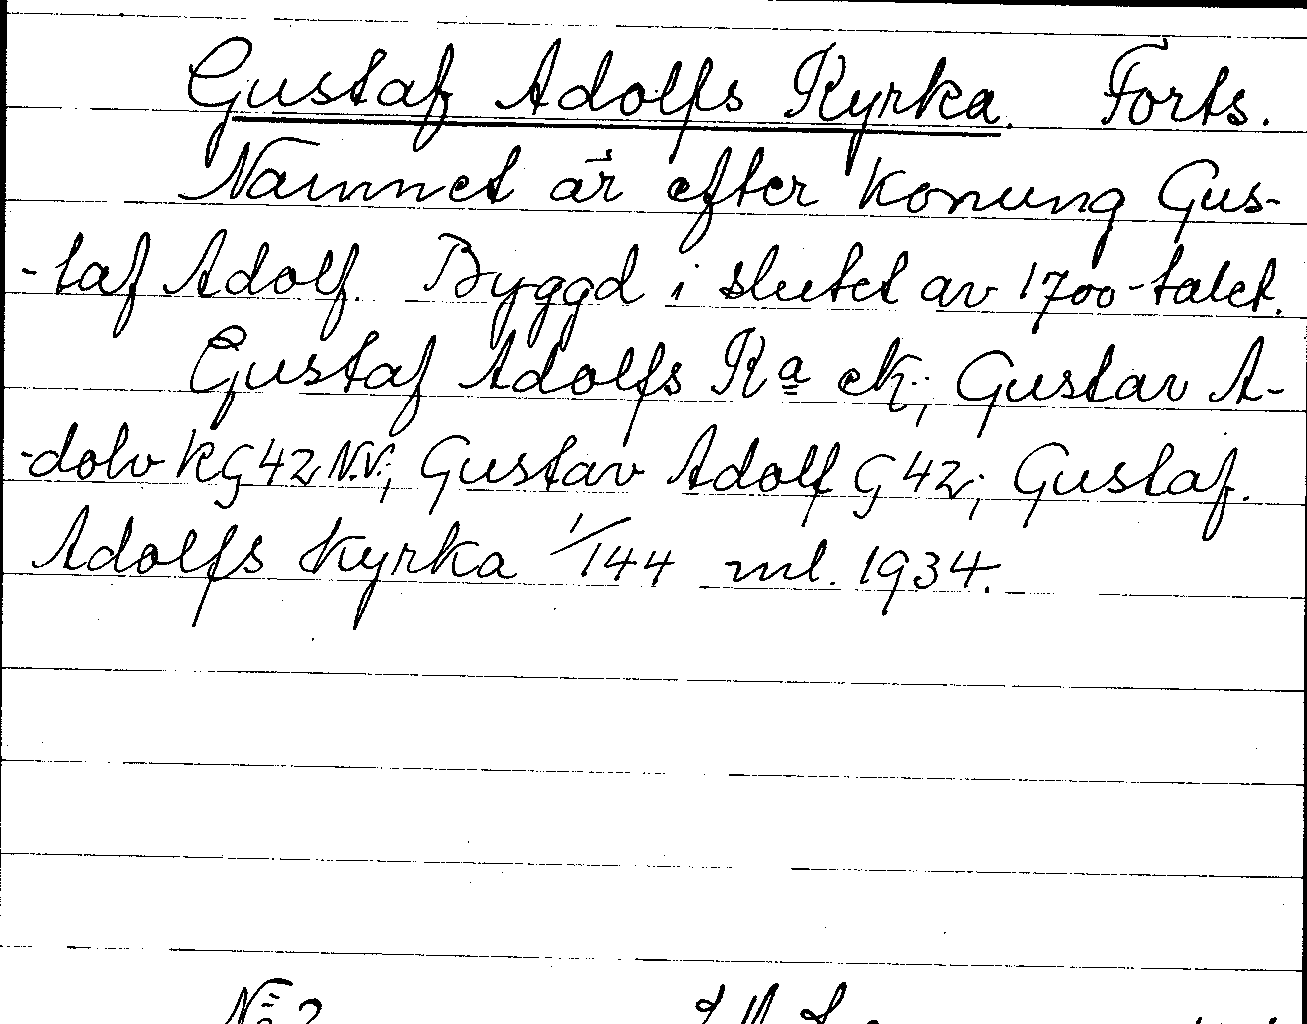 Gustaf Adolfs Kyrka. Forts.
Namnet är efter Konung Gus-
-taf Adolf. Byggd i slutet av 1700-talet.
Gustaf Adolfs Ka ek.; Gustav A-
-dolv KG42 N.V.; Gustav Adolf G42; Gustaf.
Adolfs Kyrka 1/144 ml. 1934.